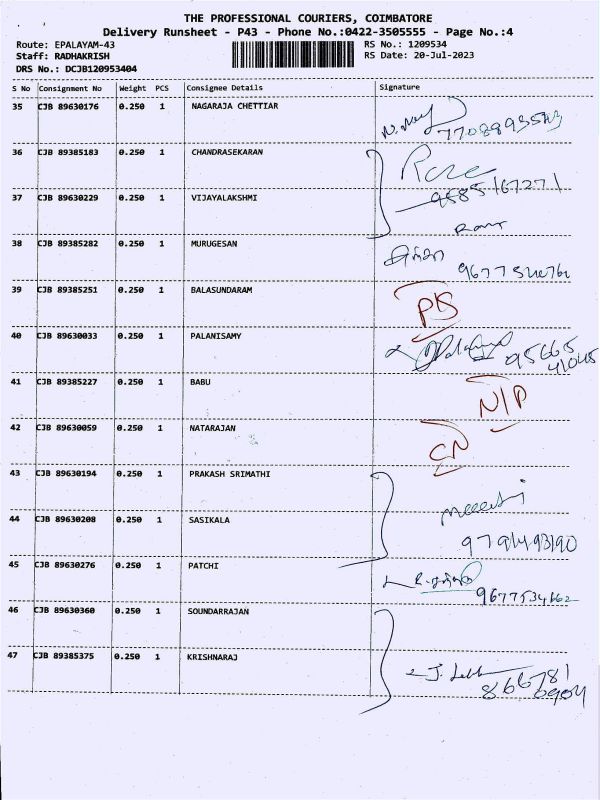 THE PROFESSIONAL COURIERS, COIMBATORE
Delivery Runsheet - P43 - Phone No.:0422-3505555 - Page No.:4
Route: EPALAYAM-43
RS No.: 1209534
Staff: RADHAKRISH
RS Date: 20-Jul-2023
DRS No.: DCJB120953404
S No Consignment No Weight PCS Consignee Details Signature
35 CJB 89630176 0.250 1 NAGARAJA CHETTIAR
36 CJB 89385183 0.250 1 CHANDRASEKARAN
37 CJB 89630229 0.250 1 VIJAYALAKSHMI 9585167271
38 CJB 89385282 0.250 1 MURUGESAN
39 CJB 89385251 0.250 1 BALASUNDARAM
40 CJB 89630033 0.250 1 PALANISAMY 95665
41045
41 CJB 89385227 0.250 1 BABU N/P
42 CJB 89630059 0.250 1 NATARAJAN CN
43 CJB 89630194 0.250 1 PRAKASH SRIMATHI
44 CJB 89630208 0.250 1 SASIKALA 9791493190
45 CJB 89630276 0.250 1 PATCHI 9677534662
46 CJB 89630360 0.250 1 SOUNDARRAJAN
47 CJB 89385375 0.250 1 KRISHNARAJ 866781
0904